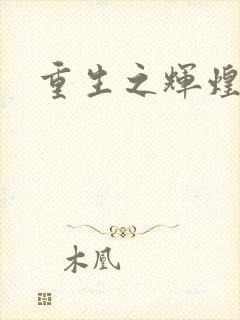 重生之辉煌
木凰